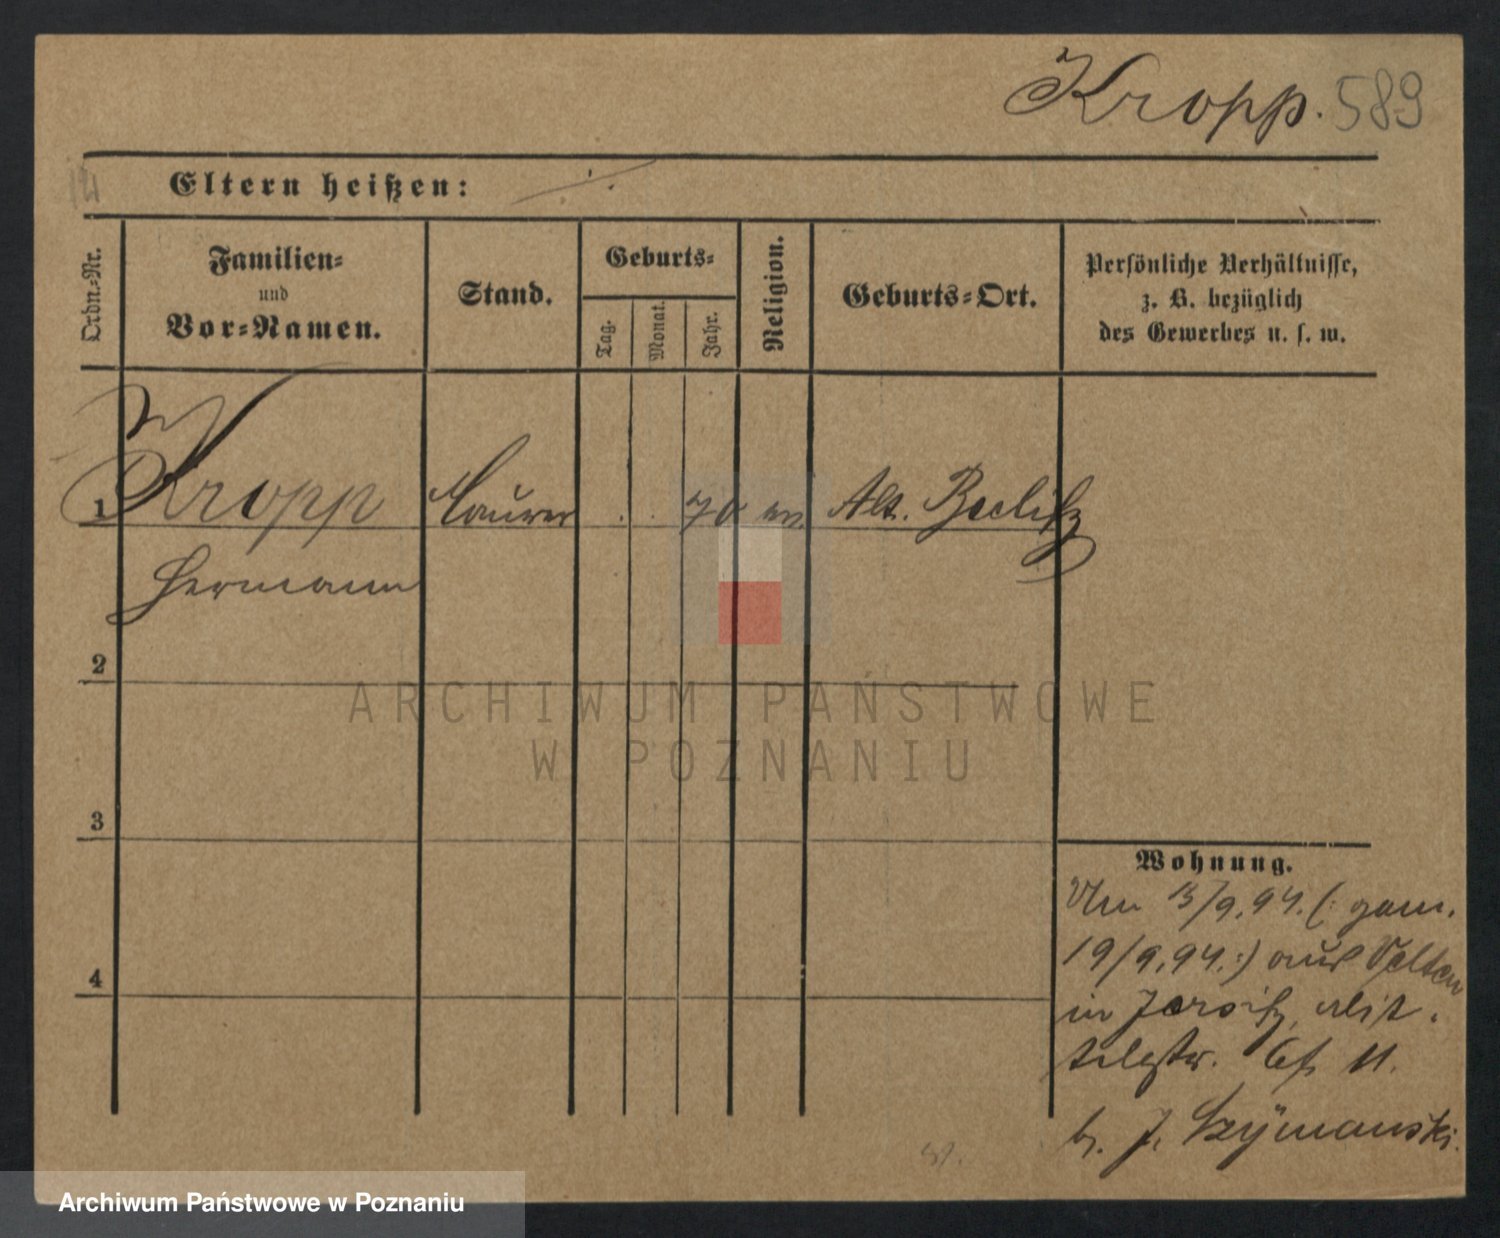 Kropp. 589
Eltern heißen:
Ordn.-Nr.
Familien-
und
Vor-Namen.
Stand.
Geburts-
Tag.
Monat.
Jahr.
Religion.
Geburts-Ort.
Persönliche Verhältnisse,
z. B. bezüglich
des Gewerbes u. s. w.
1 Kropp Maurer 70 ev. Alt. Beelitz
Hermann
2
ARCHIWUM PAŃSTWOWE
W POZNANIU
3
4
Wohnung.
Vom 13/9.94. (: gem.
19/9.94.:) aus Velten
in Jersitz,
11.
b. J. Szymanski.
Archiwum Państwowe w Poznaniu